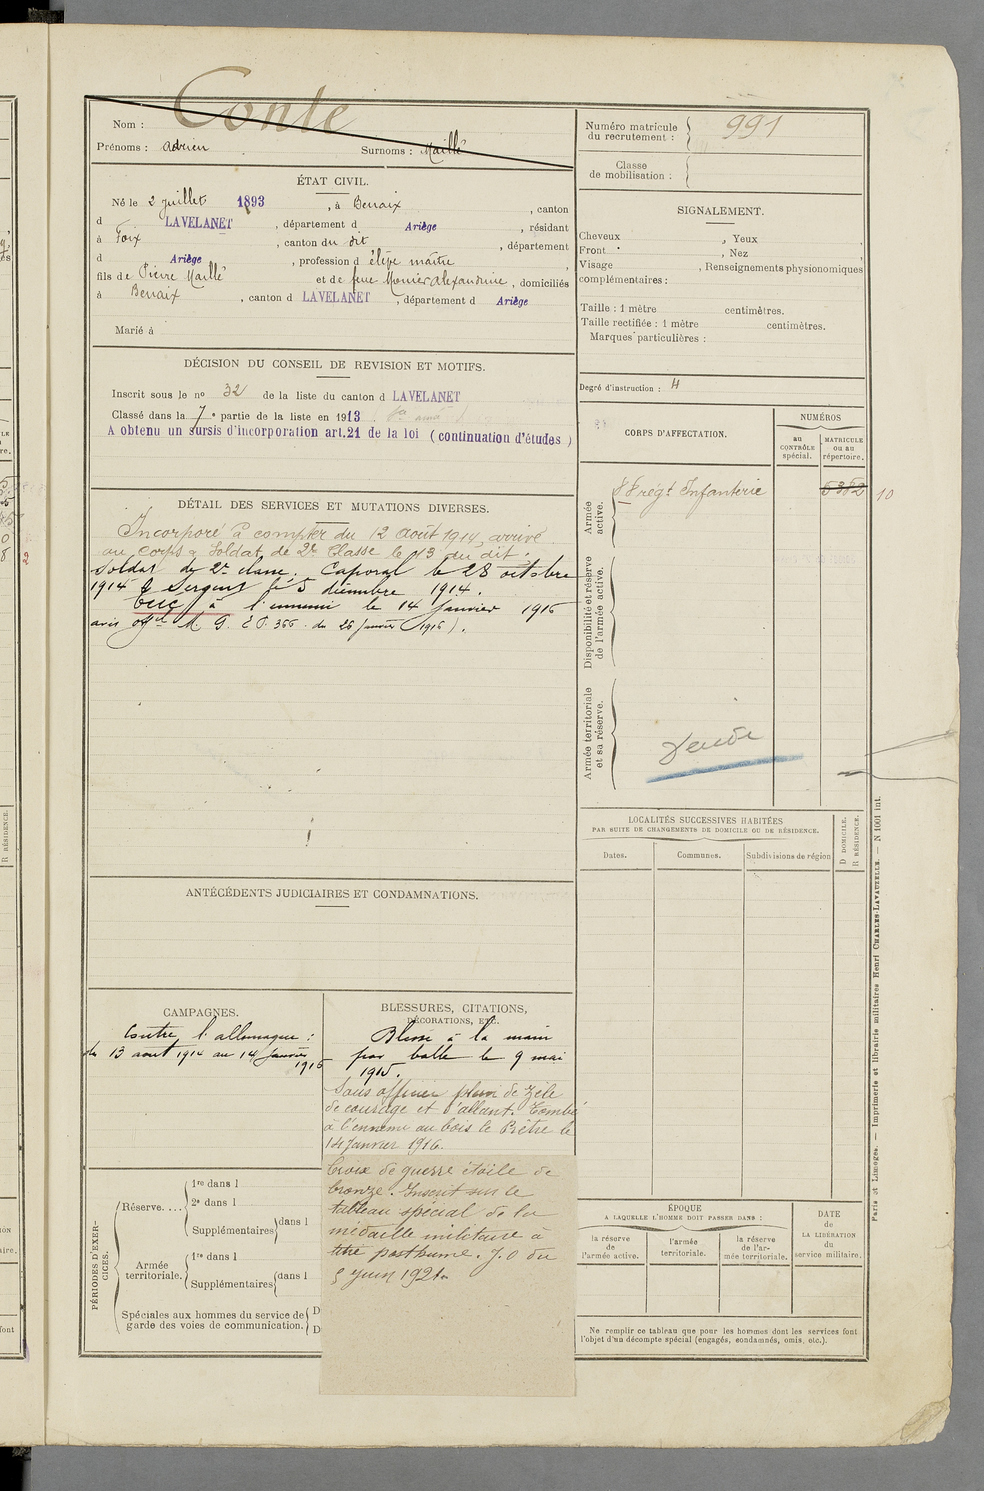 Conte
Nom :
Prénoms : Adrien Surnoms : Maillé
ÉTAT CIVIL.
Né le 2 juillet 1893, à Benaix, canton
d LAVELANET, département d Ariège, résidant
à Foix, canton du dit, département
d Ariège, profession d élève maître,
fils de Pierre Maillé et de feue Monier Alexandrine, domiciliés
à Benaix, canton d LAVELANET, département d Ariège
Marié à
DÉCISION DU CONSEIL DE REVISION ET MOTIFS.
Inscrit sous le no 32 de la liste du canton d LAVELANET
Classé dans la 7e partie de la liste en 1913
A obtenu un sursis d'incorporation art.21 de la loi (continuation d'études)
DÉTAIL DES SERVICES ET MUTATIONS DIVERSES.
Incorporé à compter du 12 août 1914, arrivé
au corps & Soldat de 2e Classe le 13 du dit.
Soldat de 2e classe. Caporal le 28 octobre
1914 & Sergent le 5 décembre 1914.
Tué à l'ennemi le 14 janvier 1916
avis off.el M. G. E P. 366 du 26 janvier 1916).
ANTÉCÉDENTS JUDICIAIRES ET CONDAMNATIONS.
CAMPAGNES.
Contre l'allemagne :
du 13 août 1914 au 14 janvier
1916
BLESSURES, CITATIONS,
DÉCORATIONS, ETC.
Blessé à la main
par balle le 9 mai
1915.
Sous officier plein de zèle
de courage et d'allant. Tombé
à l'ennemi au bois le Prêtre le
14 janvier 1916.
Croix de guerre étoile de
bronze. Inscrit sur le
tableau spécial de la
médaille militaire à
titre posthume. J.O du
5 juin 1921.
PÉRIODES D'EXER-
CICES.
Réserve....
1re dans l
2e dans l
Supplémentaires dans l
Armée
territoriale.
1re dans l
Supplémentaires dans l
Spéciales aux hommes du service de
garde des voies de communication.
D
D
Numéro matricule
du recrutement : 991
Classe
de mobilisation :
SIGNALEMENT.
Cheveux , Yeux ,
Front , Nez
Visage , Renseignements physionomiques
complémentaires :
Taille : 1 mètre centimètres.
Taille rectifiée : 1 mètre centimètres.
Marques particulières :
Degré d'instruction : 4
CORPS D'AFFECTATION.
NUMÉROS
au
CONTRÔLE
spécial.
MATRICULE
ou au
répertoire.
Armée
active.
88 régt Infanterie 5352 10
Disponibilité et réserve
de l'armée active.
Armée territoriale
et sa réserve.
LOCALITÉS SUCCESSIVES HABITÉES
PAR SUITE DE CHANGEMENTS DE DOMICILE OU DE RÉSIDENCE.
Dates. Communes. Subdivisions de région
D DOMICILE.
R RÉSIDENCE.
ÉPOQUE
A LAQUELLE L'HOMME DOIT PASSER DANS :
la réserve
de
l'armée active.
l'armée
territoriale.
la réserve
de l'ar-
mée territoriale.
DATE
de
LA LIBÉRATION
du
service militaire.
Ne remplir ce tableau que pour les hommes dont les services font
l'objet d'un décompte spécial (engagés, condamnés, omis, etc.).
Paris et Limoges. — Imprimerie et librairie militaires Henri CHARLES-LAVAUZELLE. — N 1001 int.
R RÉSIDENCE.